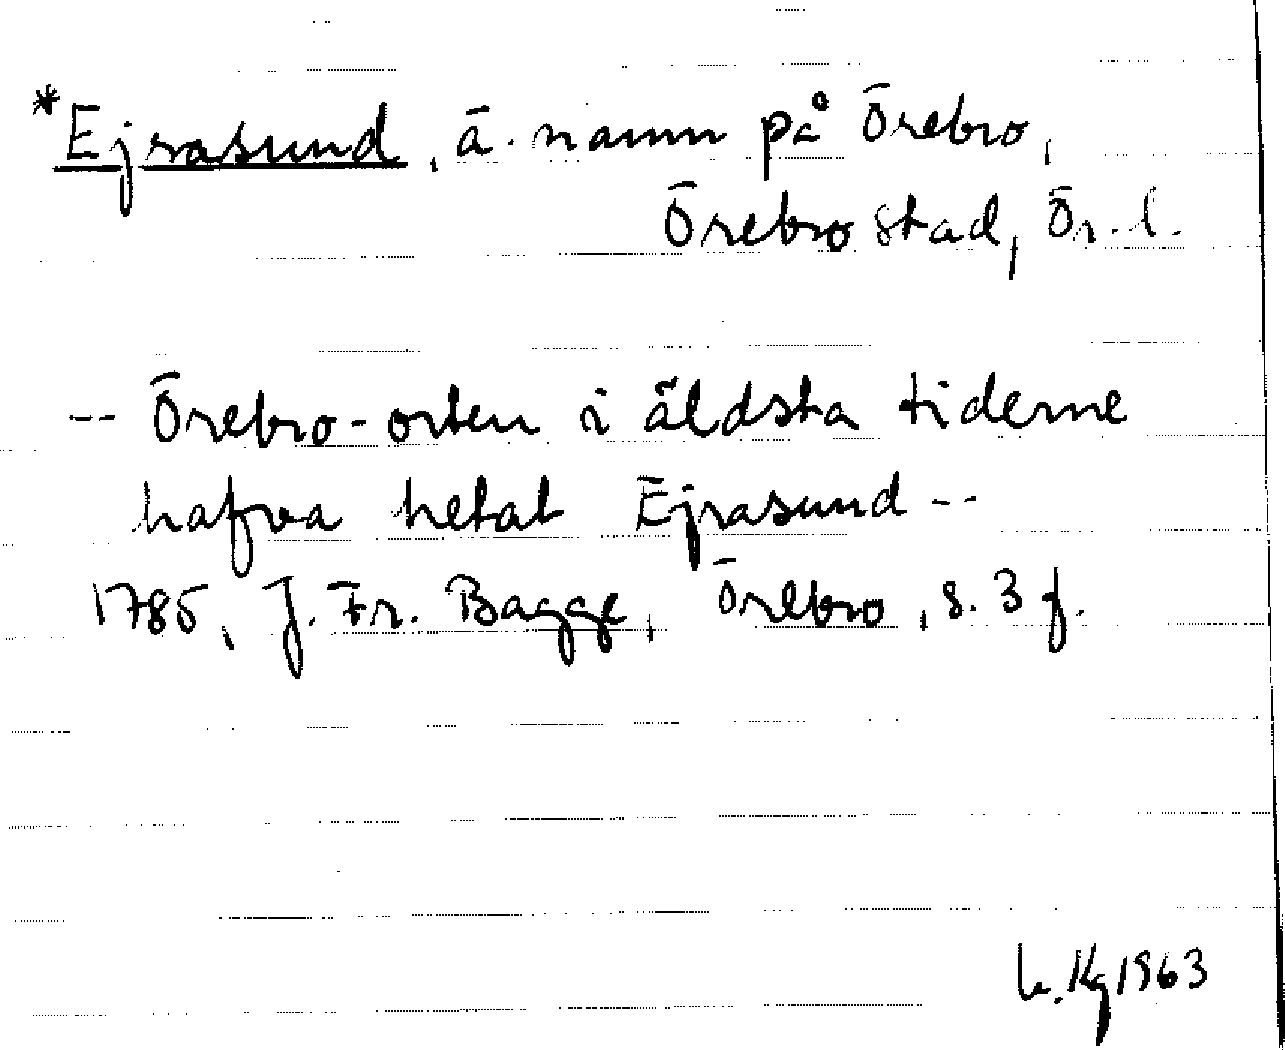 *Ejrasund, ä. namn på Örebro,
Örebro stad, Ör. l.
-- Örebro-orten i äldsta tiderne
hafva hetat Ejrasund --
1785, J. Fr. Bagge, Örebro, s. 3 f.
Kg 1963